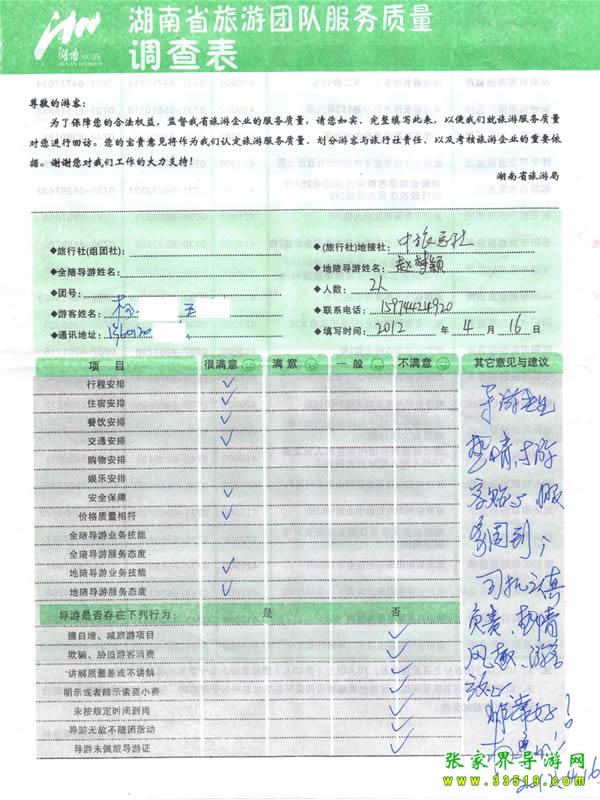 湖南
HUNAN TOURISM
湖南省旅游团队服务质量
调查表
尊敬的游客：
为了保障您的合法权益，监督我省旅游企业的服务质量，请您如实、完整填写此表，以便我们就旅游服务质量
对您进行回访。您的宝贵意见将作为我们认定旅游服务质量、划分游客与旅行社责任、以及考核旅游企业的重要依
据。谢谢您对我们工作的大力支持！
湖南省旅游局
◆旅行社(组团社)： ◆(旅行社)地接社：中旅总社
◆全陪导游姓名： ◆地陪导游姓名：赵梦颖
◆团号： ◆人数：2人
◆游客姓名： ◆联系电话：15974424920
◆通讯地址：1360120 ◆填写时间：2012 年 4 月 16 日
项 目 很满意 满意 一般 不满意 其它意见与建议
行程安排 ✓
住宿安排 ✓
餐饮安排 ✓
交通安排 ✓
购物安排
娱乐安排
安全保障 ✓
价格质量相符 ✓
全陪导游业务技能
全陪导游服务态度
地陪导游业务技能 ✓
地陪导游服务态度 ✓
导游是否存在下列行为： 是 否
擅自增、减旅游项目 ✓
欺骗、胁迫游客消费 ✓
讲解质量差或不讲解 ✓
明示或者暗示索要小费 ✓
未按规定时间到岗 ✓
导游无故不随团活动 ✓
导游未佩戴导游证 ✓
热情，与游
客贴心，服
务周到；
司机认真
负责、热情
风趣、游客
放心
非常好！
2012.4.16
张家界导游网
www.33519.com